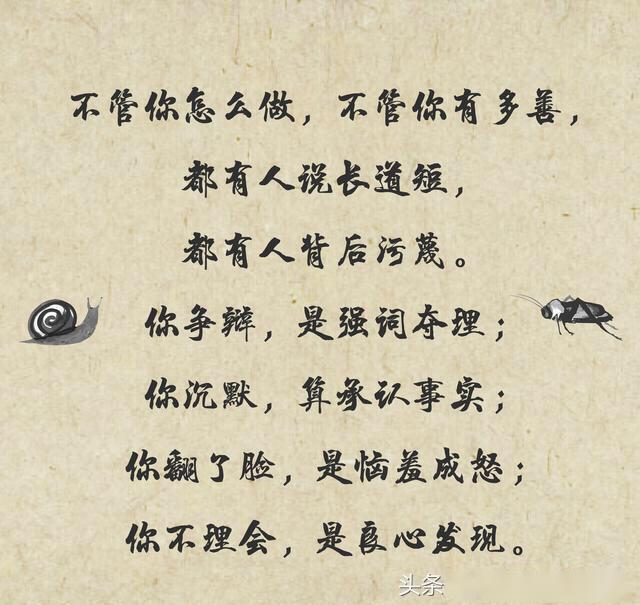 不管你怎么做，不管你有多善，
都有人说长道短，
都有人背后污蔑。
你争辩，是强词夺理；
你沉默，算承认事实；
你翻了脸，是恼羞成怒；
你不理会，是良心发现。
头条